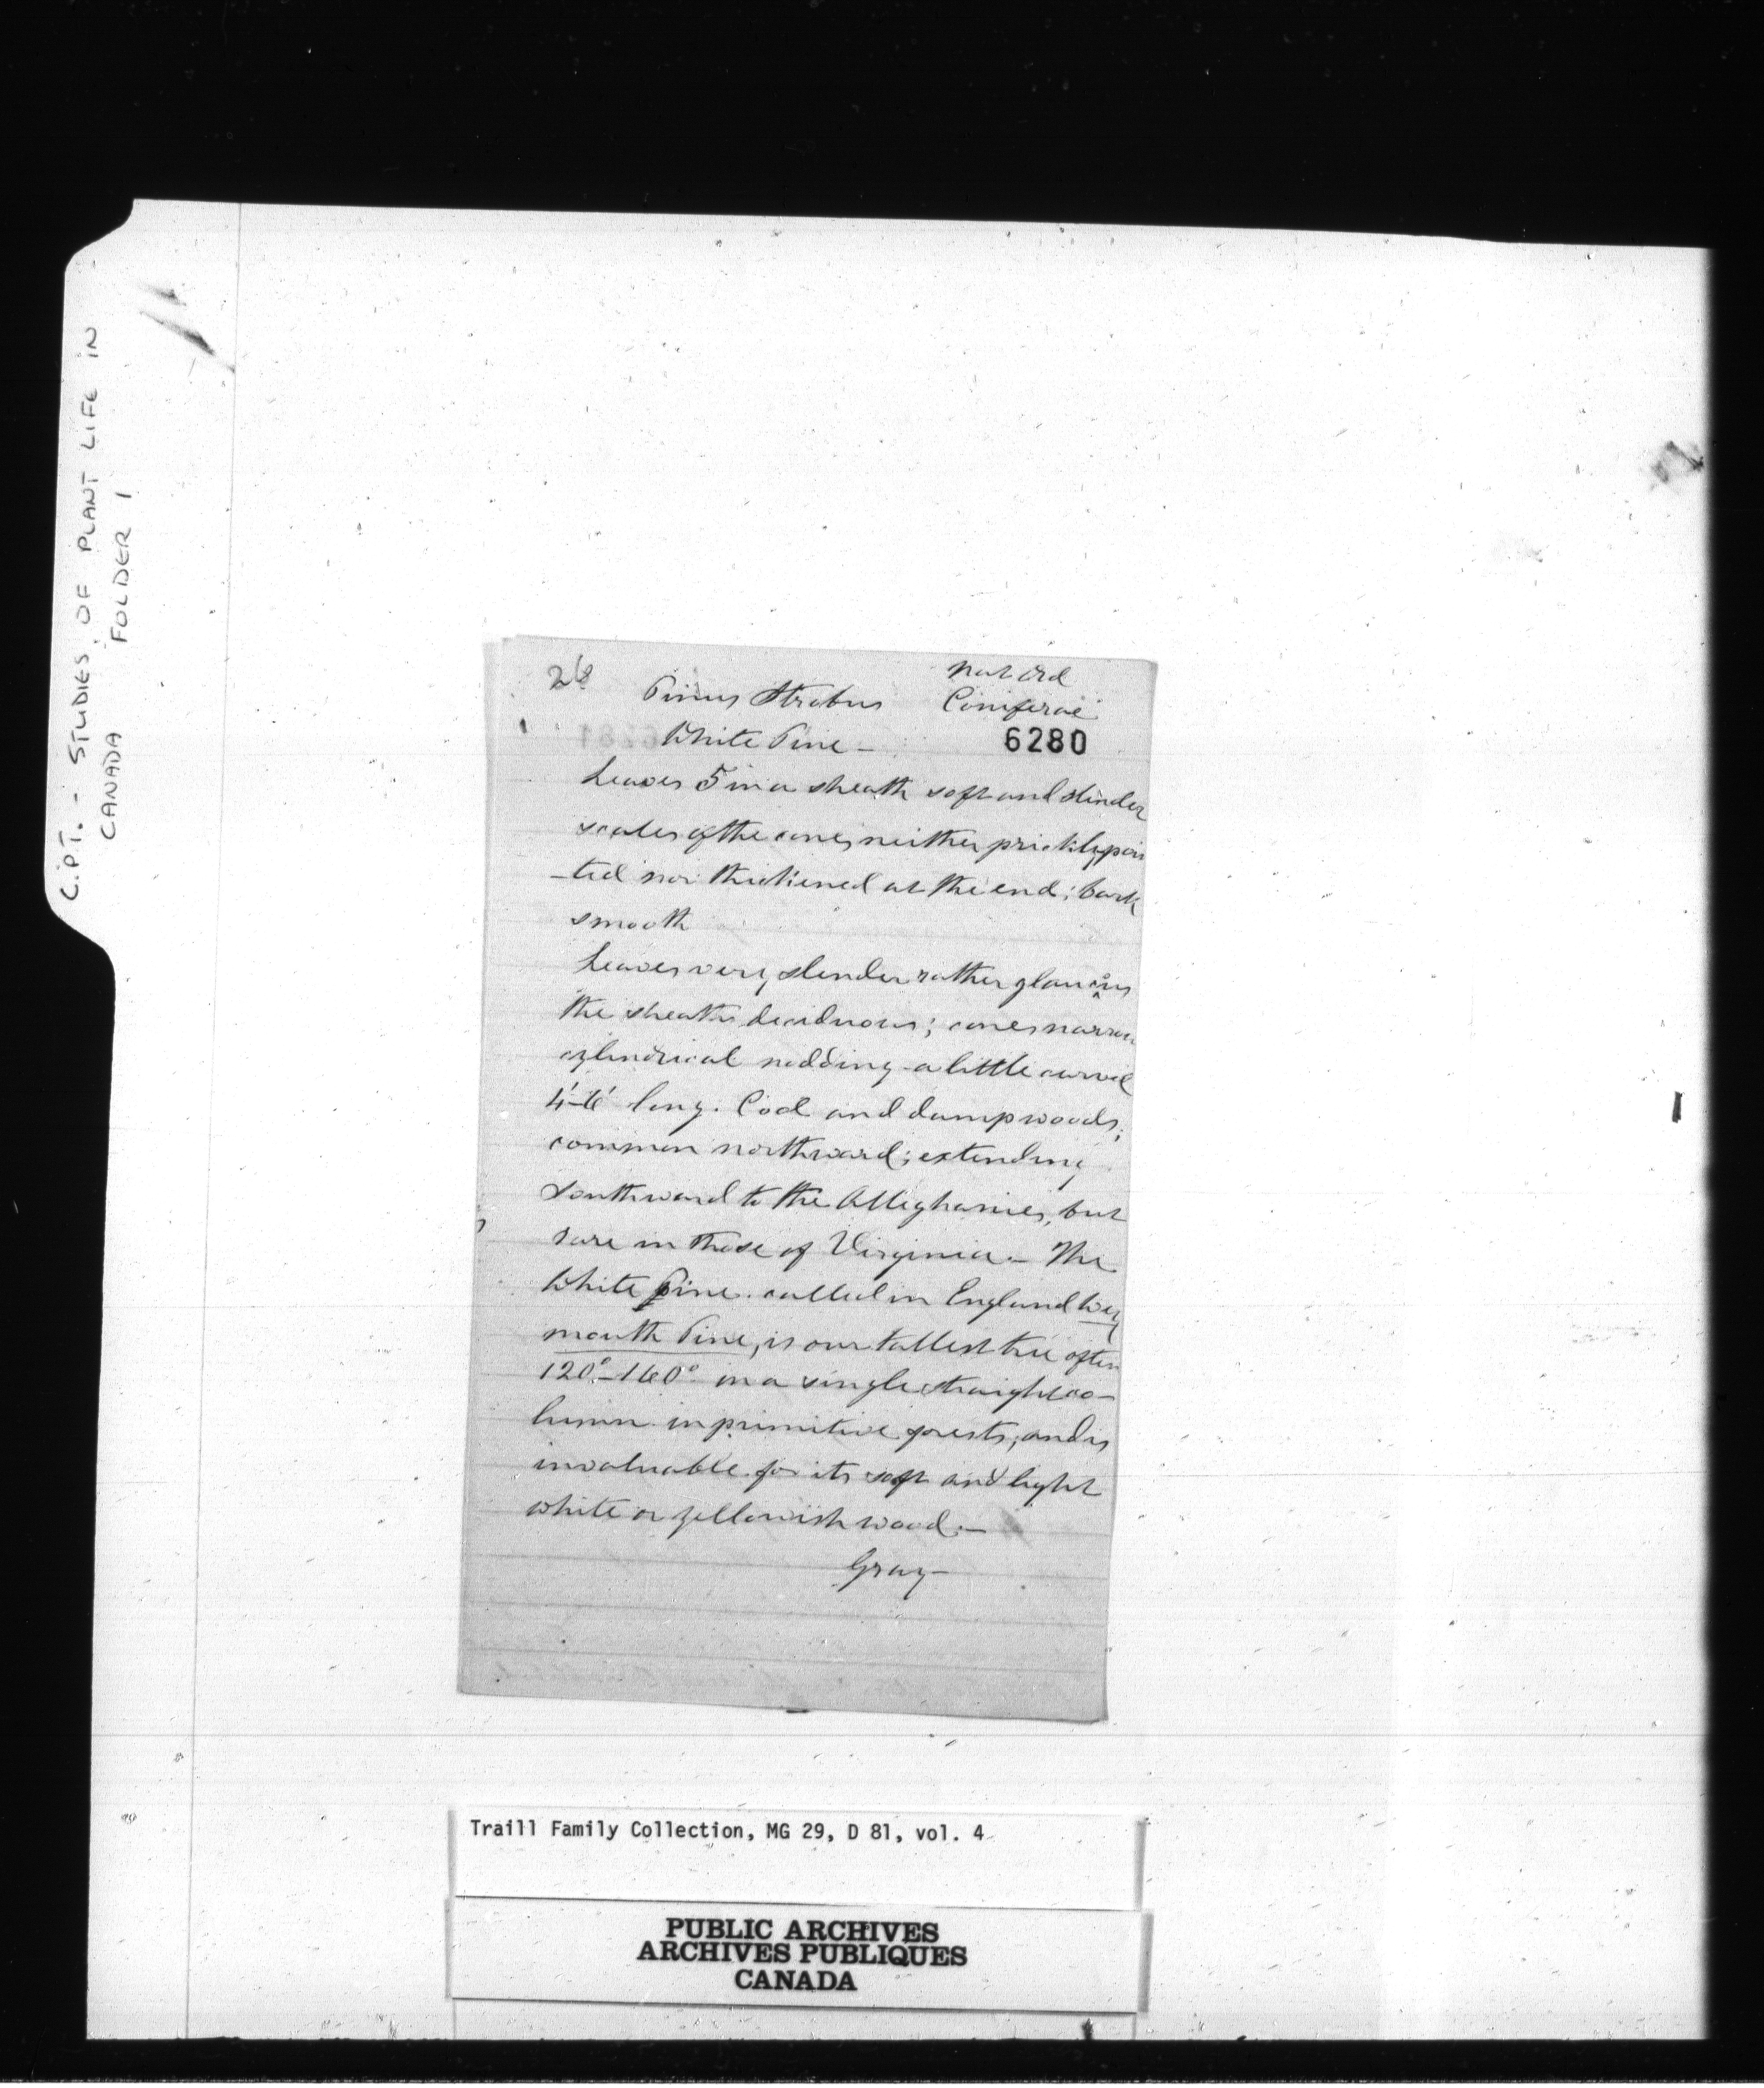 C.P.T. - STUDIES OF PLANT LIFE IN
CANADA FOLDER 1
26
Nat Ord
Pinus Strobus Coniferae
White Pine – 6280
Leaves 5 in a sheath soft and slender
scales of the cones neither prickly poin
-ted nor thickened at the end; bark
smooth
Leaves very slender rather glaucous
the sheath deciduous; cones narrow
cylindrical nodding a little curved
4'-6' long. Cool and damp woods;
common northward; extending
Southward to the Alleghanies, but
rare in those of Virginia – The
White Pine called in England Wey
mouth Pine, is our tallest tree often
120°–160° in a single straight co–
lumn in primitive forests; and is
invaluable for its soft and light
white or yellowish wood.–
Gray–
Traill Family Collection, MG 29, D 81, vol. 4
PUBLIC ARCHIVES
ARCHIVES PUBLIQUES
CANADA